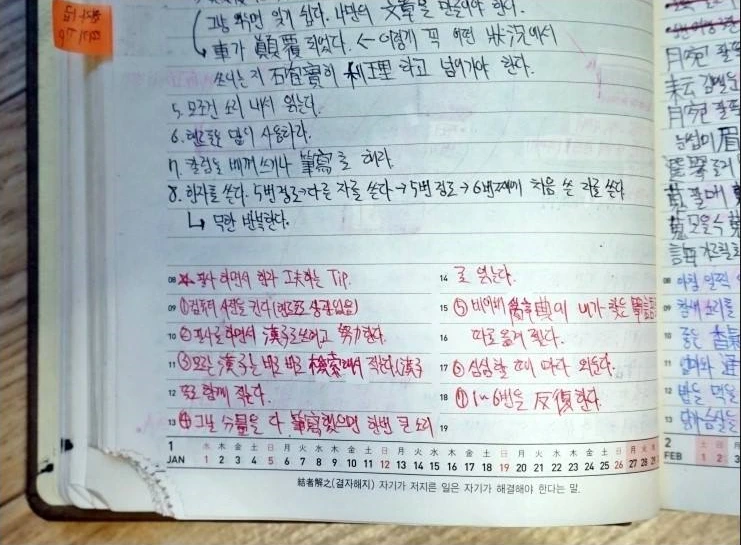 그냥 하면 잊기 쉽다. 나만의 文章을 만들어야 한다.
↳ 車가 顚覆 되었다. ← 이렇게 꼭 어떤 狀況에서
쓰이는 지 確實히 整理 하고 넘어가야 한다.
5. 무조건 소리 내서 읽는다.
6. 많이 사용하라.
7. 칼럼을 베껴 쓰거나 筆寫를 해라.
8. 한자를 쓴다. 5번 정도→다른 자를 쓴다→5번 정도→6번째에 처음 쓴 자를 쓴다
↳ 무한 반복한다.
08 필사 하면서 한자 工夫하는 Tip.
09 ① 컴퓨터 사전을 켠다
10 ② 필사를 하면서 漢字로 쓰려고 努力한다.
11 ③ 모르는 漢字는 바로 바로 檢索해서 적는다. (漢字
12 뜻도 함께 적는다.
13 ④ 그날 分量을 다 筆寫했으면 한번 큰 소리
14 로 읽는다.
15 ⑤ 네이버 字典에 내가 찾은 單語
16 따로 옮겨 적는다.
17 ⑥ 심심할 때 마다 외운다.
18 ⑦ 1~6번을 反復한다.
19
1 水 木 金 土 日 月 火 水 木 金 土 日 月 火 水 木 金 土 日 月 火 水 木 金 土 日 月 火 水
JAN 1 2 3 4 5 6 7 8 9 10 11 12 13 14 15 16 17 18 19 20 21 22 23 24 25 26 27 28 29
結者解之(결자해지) 자기가 저지른 일은 자기가 해결해야 한다는 말.
月宛
月宛
눈썹이 眉
08 아침 일찍
09 참새 소리를
10 좋은 香氣
11
12 밥을 먹을
13
2 土 日 月
FEB 1 2 3